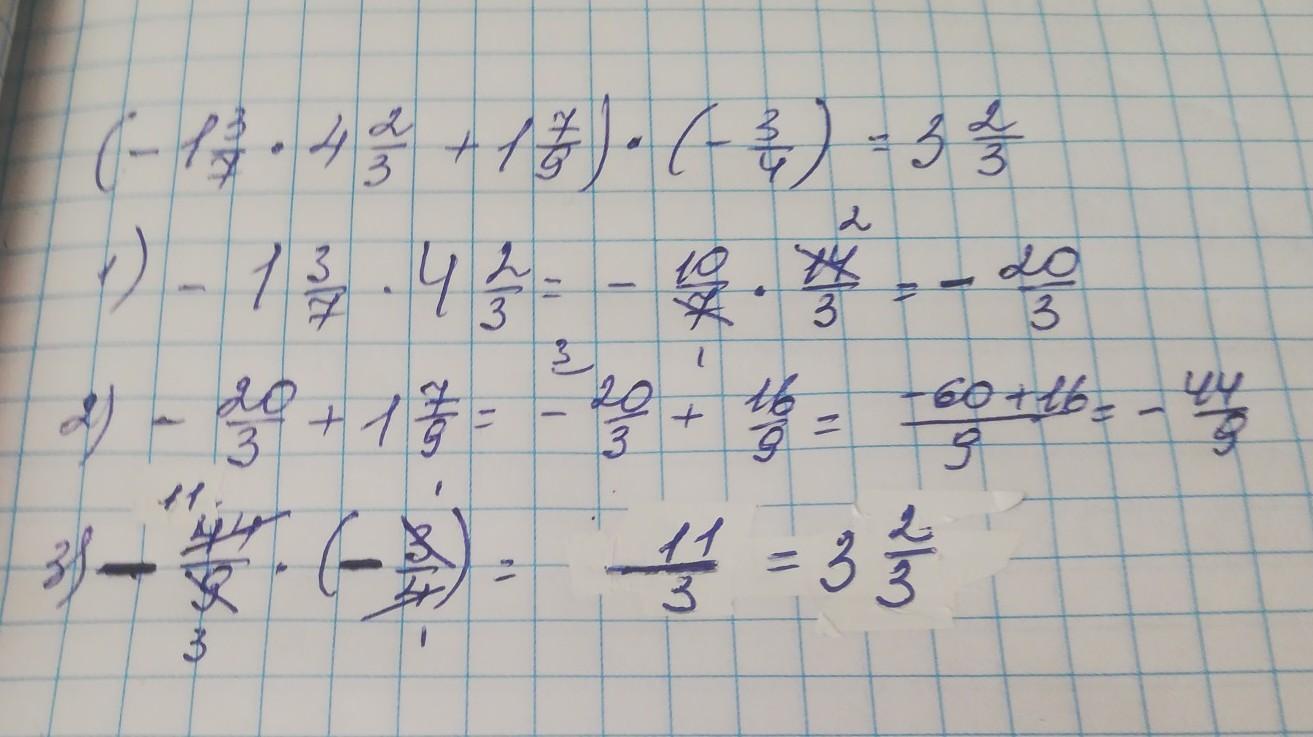 (- 1 3/7 · 4 2/3 + 1 7/9) · (- 3/4) = 3 2/3
1) - 1 3/7 · 4 2/3 = - 10/7 · 14/3 = - 20/3
2) - 20/3 + 1 7/9 = - 20/3 + 16/9 = (-60+16)/9 = - 44/9
3) - 44/9 · (- 3/4) = 11/3 = 3 2/3